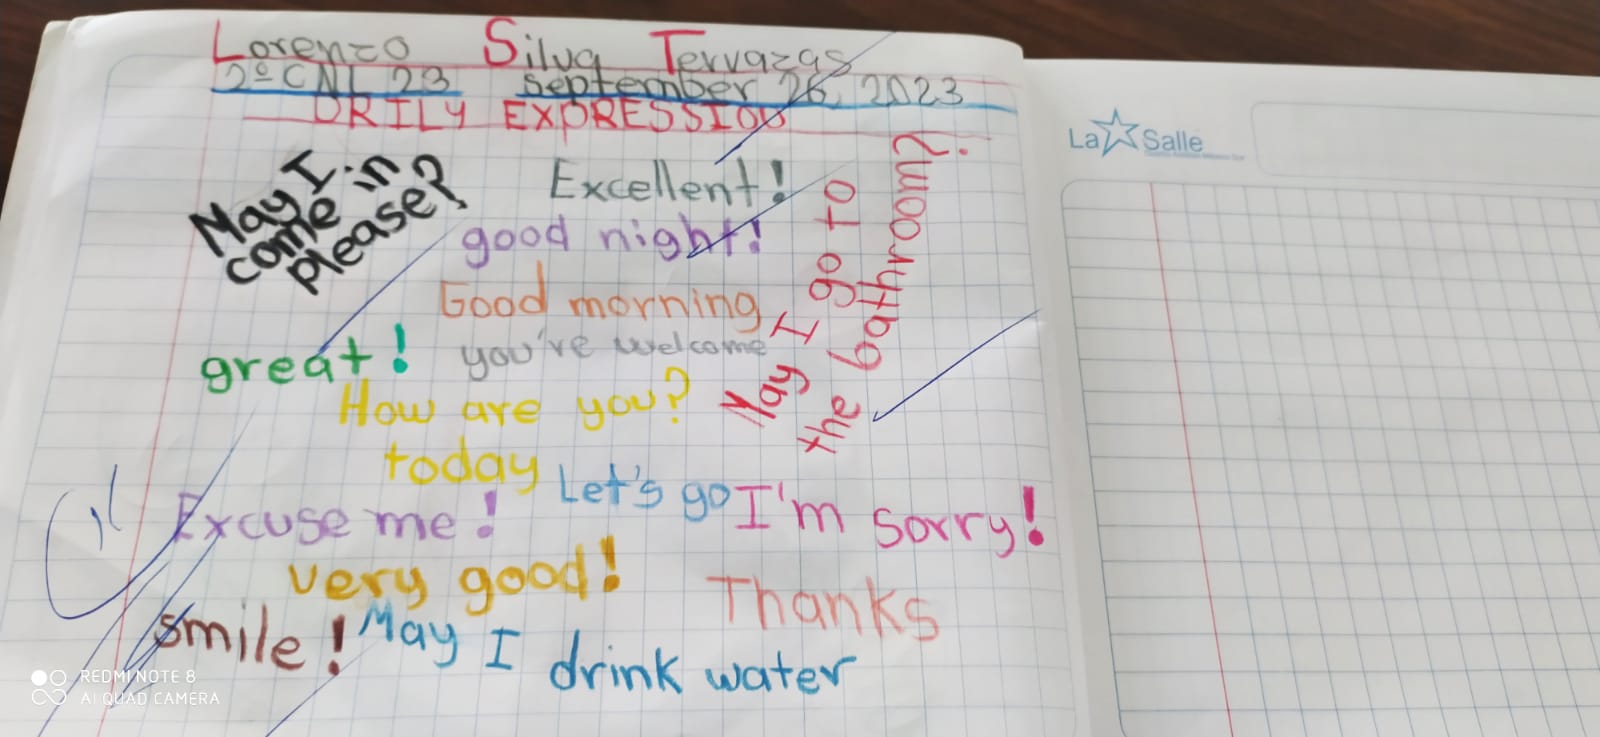 Lorenzo Silva Terrazas
2º CNL 23 september 26, 2023
DAILY EXPRESSION
May I
come in
please?
Excellent!
good night!
Good morning
you're welcome
great!
How are you?
today
May I go to
the bathroom¿
Let's go
I'm sorry!
Excuse me!
very good!
Thanks
smile!
May I drink water
La Salle
REDMI NOTE 8
AI QUAD CAMERA